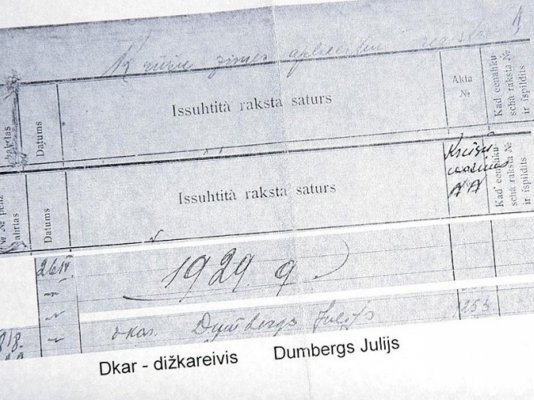 Krūšu zīmes
Datums
Issuhtitâ raksta saturs
Akta №
Kad eenahku
schâ raksta №
ir ispildits
Datums
Issuhtitâ raksta saturs
Kad eenahku
schâ raksta №
ir ispildits
26/IV. 1929 g.
dkar. Dumbergs Julijs 253
Dkar - dižkareivis Dumbergs Julijs